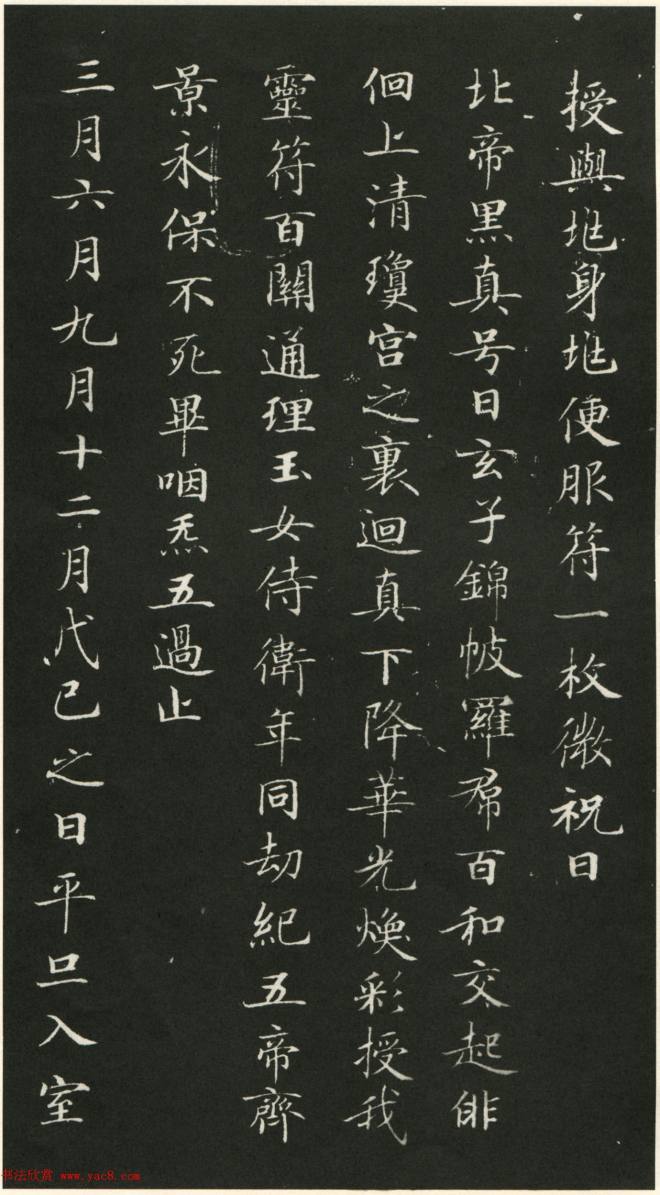 授與地身地便服符一枚微祝曰
北帝黑真号曰玄子錦帔羅帬百和交起俳
佪上清瓊宮之裏迴真下降華光煥彩授我
靈符百關通理玉女侍衛年同劫紀五帝齊
景永保不死畢咽炁五過止
三月六月九月十二月戊己之日平旦入室
书法欣赏 www.yac8.com